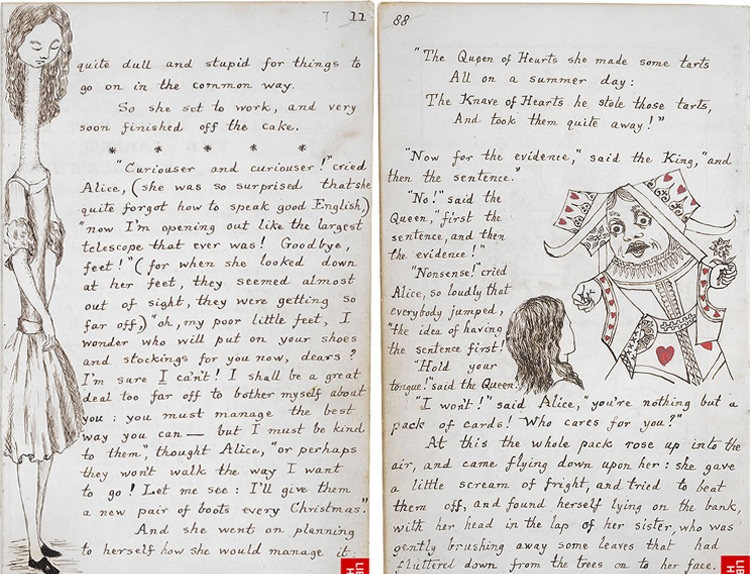 7 11
quite dull and stupid for things to
go on in the common way.
So she set to work, and very
soon finished off the cake.
* * * * *
"Curiouser and curiouser!" cried
Alice, (she was so surprised that she
quite forgot how to speak good English,)
"now I'm opening out like the largest
telescope that ever was! Goodbye,
feet!" (for when she looked down
at her feet, they seemed almost
out of sight, they were getting so
far off,) "oh, my poor little feet, I
wonder who will put on your shoes
and stockings for you now, dears?
I'm sure I can't! I shall be a great
deal too far off to bother myself about
you: you must manage the best
way you can — but I must be kind
to them", thought Alice, "or perhaps
they won't walk the way I want
to go! Let me see: I'll give them
a new pair of boots every Christmas."
And she went on planning
to herself how she would manage it:
LIB
H
88
"The Queen of Hearts she made some tarts
All on a summer day:
The Knave of Hearts he stole those tarts,
And took them quite away!"
"Now for the evidence," said the King, "and
then the sentence."
"No!" said the
Queen, "first the
sentence, and then
the evidence!"
"Nonsense!" cried
Alice, so loudly that
everybody jumped,
"the idea of having
the sentence first!
"Hold your
tongue!" said the Queen.
"I won't!" said Alice, "you're nothing but a
pack of cards! Who cares for you?"
At this the whole pack rose up into the
air, and came flying down upon her: she gave
a little scream of fright, and tried to beat
them off, and found herself lying on the bank,
with her head in the lap of her sister, who was
gently brushing away some leaves that had
fluttered down from the trees on to her face.
LIB
H